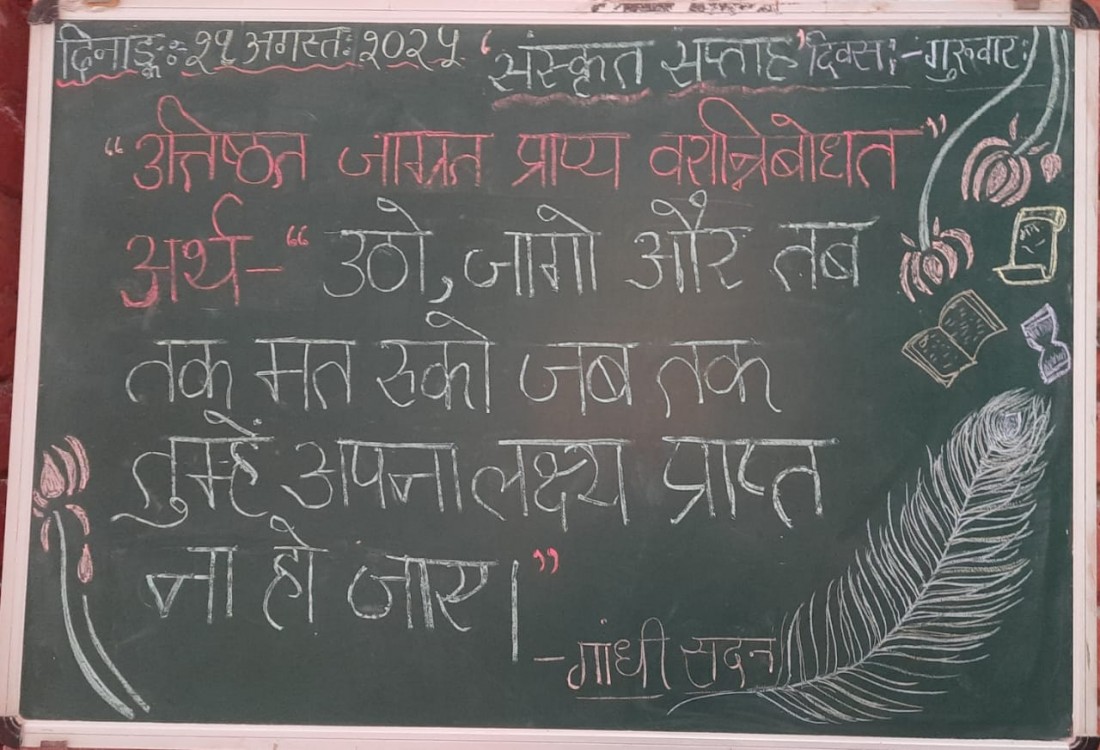 दिनाङ्कः २१ अगस्तः २०२५ 'संस्कृत सप्ताह' दिवसः-गुरुवारः
“उत्तिष्ठत जाग्रत प्राप्य वरान्निबोधत”
अर्थ-“उठो, जागो और तब
तक मत रुको जब तक
तुम्हें अपना लक्ष्य प्राप्त
ना हो जाए।”
-गांधी सदन